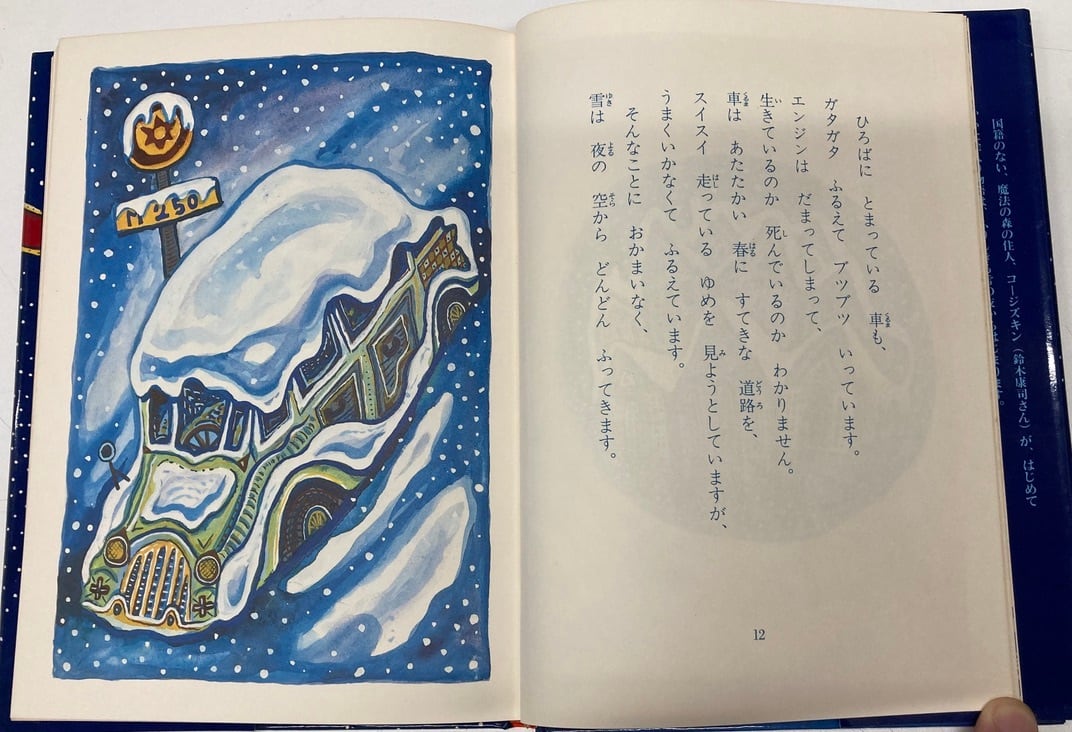 国籍のない、魔法の森の住人、コージズキン（鈴木康司さん）が、はじめて
ひろばに　とまっている　車も、
ガタガタ　ふるえて　ブツブツ　いっています。
エンジンは　だまってしまって、
生きているのか　死んでいるのか　わかりません。
車は　あたたかい　春に　すてきな　道路を、
スイスイ　走っている　ゆめを　見ようとしていますが、
うまくいかなくて　ふるえています。
そんなことに　おかまいなく、
雪は　夜の　空から　どんどん　ふってきます。
12
M 250